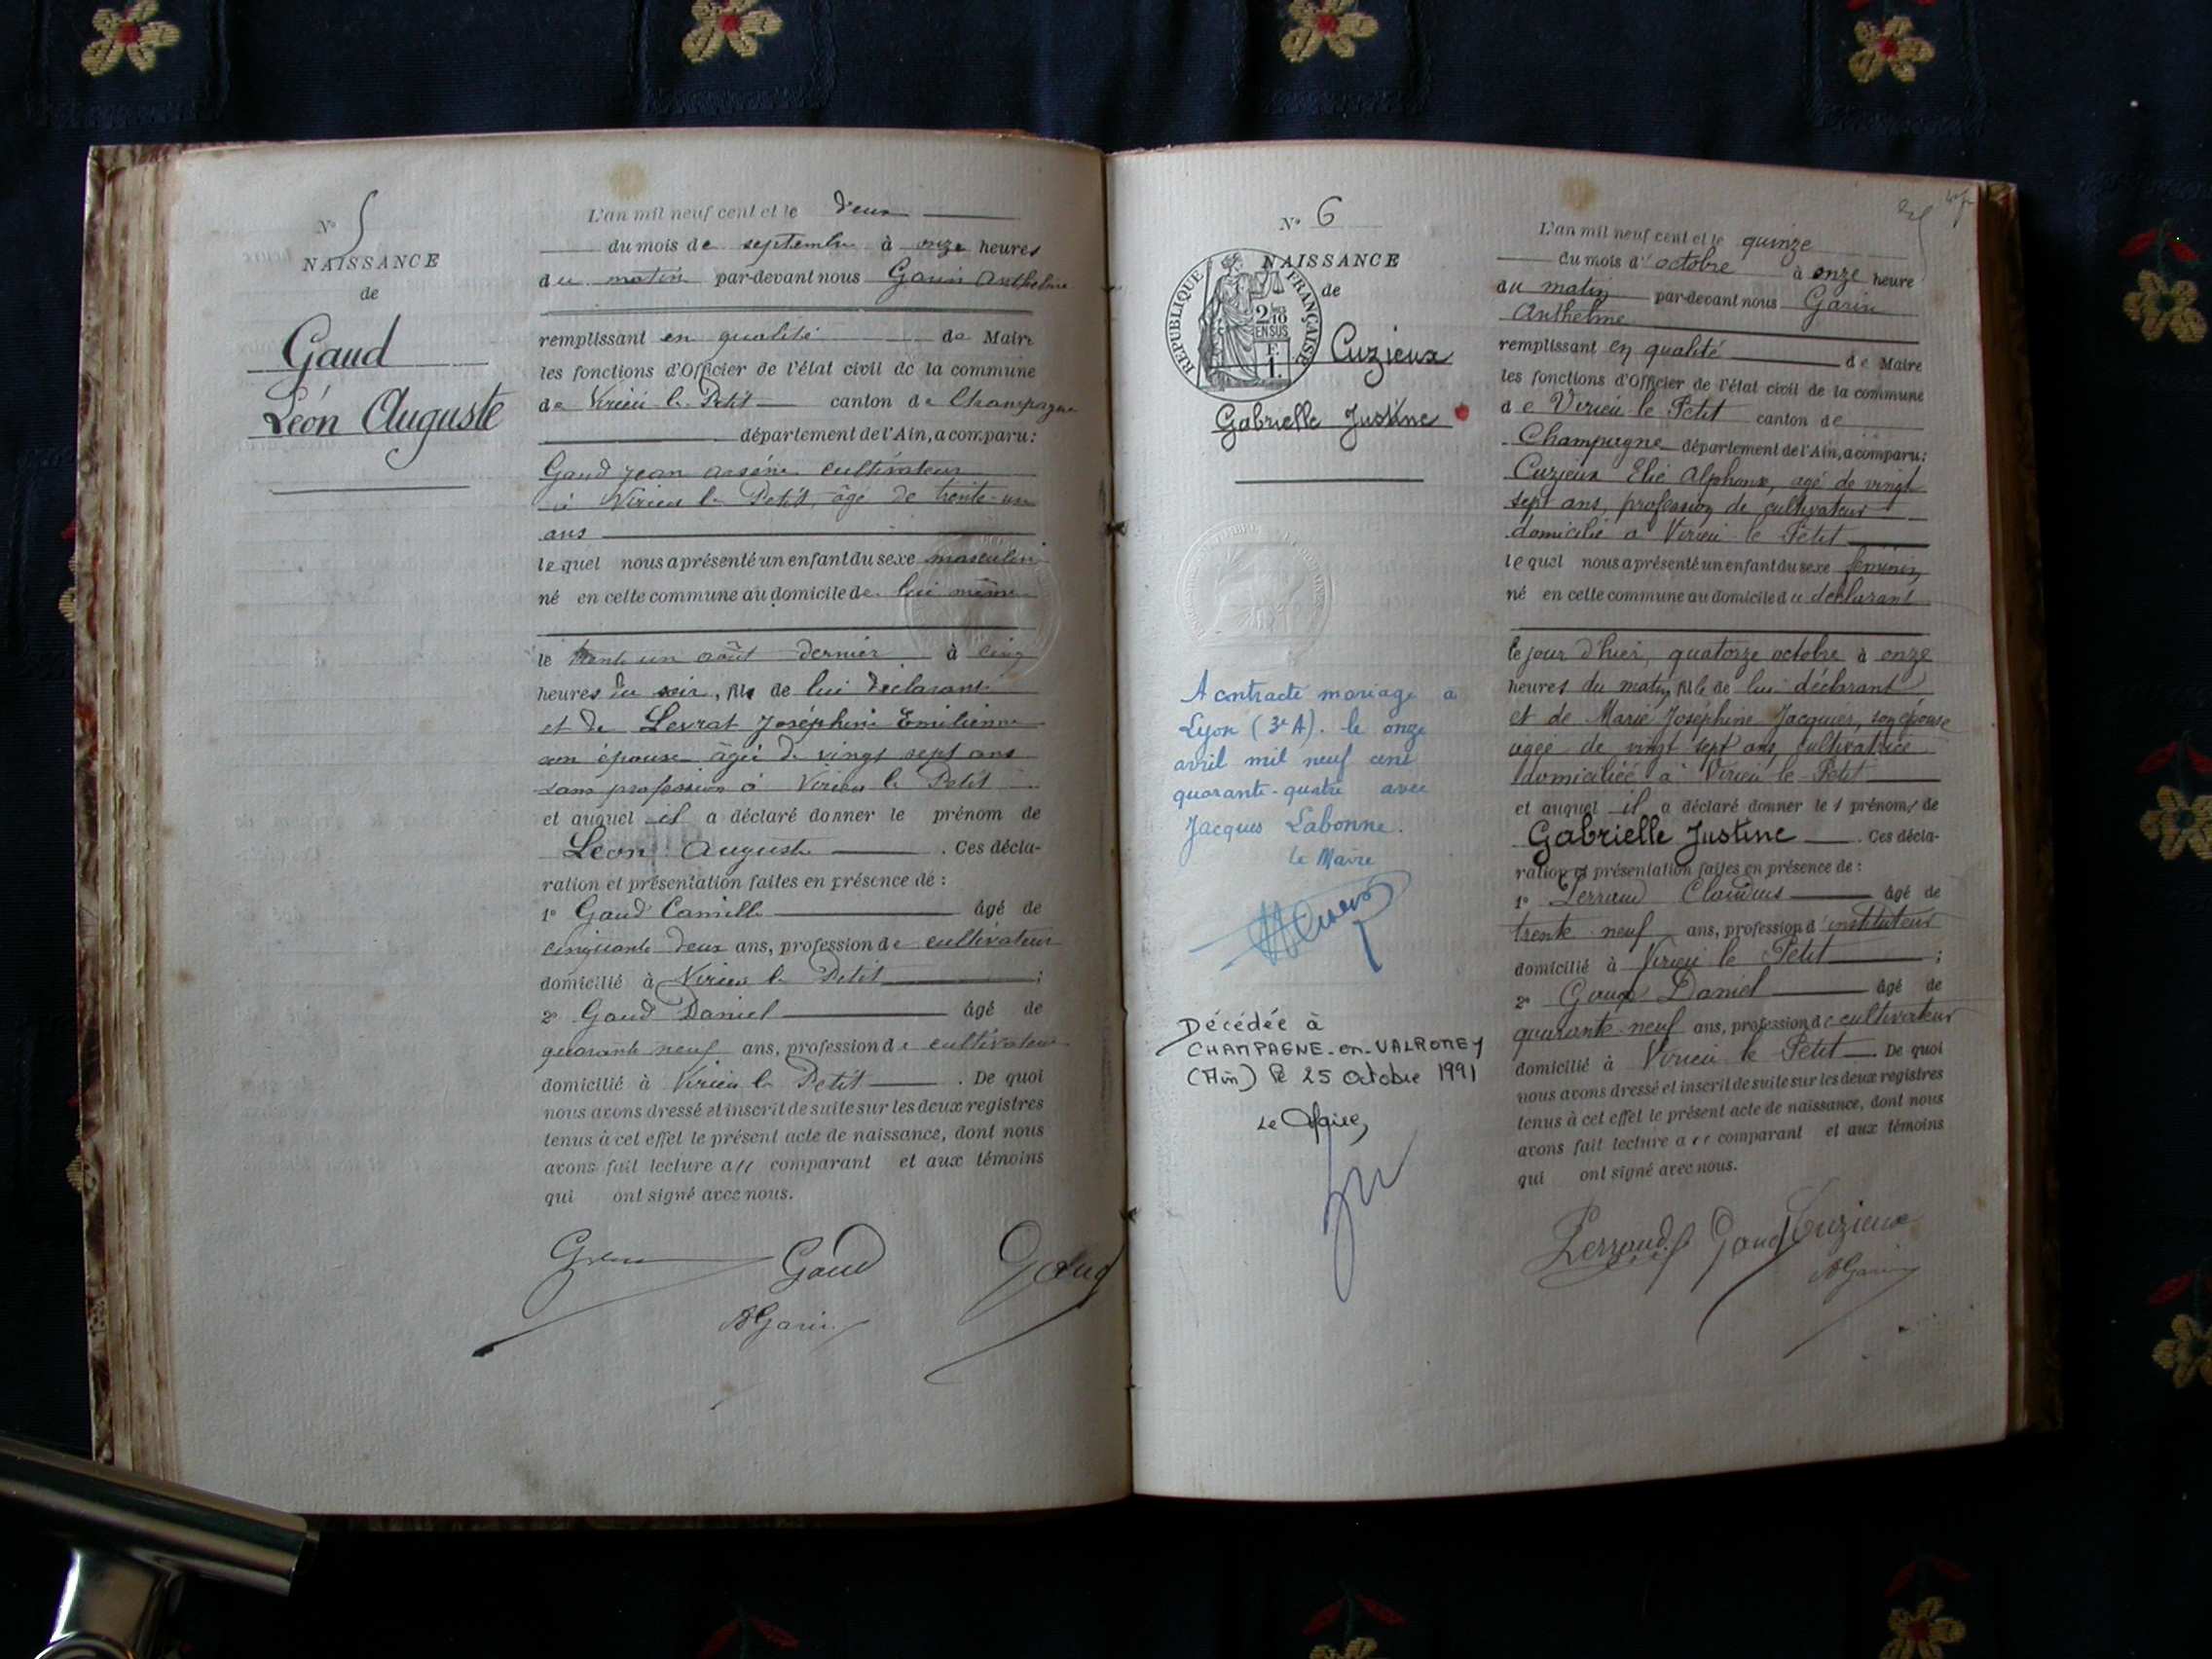 N° 5
NAISSANCE
de
Gaud
Léon Auguste
L'an mil neuf cent et le deux
du mois de septembre à onze heures
du matin par-devant nous Garin Anthelme
remplissant en qualité de Maire
les fonctions d'Officier de l'état civil de la commune
de Virieu le Petit canton de Champagne
département de l'Ain, a comparu:
Gaud Jean Arsène cultivateur
à Virieu le Petit, âgé de trente-un
ans
lequel nous a présenté un enfant du sexe masculin
né en cette commune au domicile de lui même
le trente un août dernier à cinq
heures du soir, fils de lui déclarant
et de Levrat Joséphine Emilienne
son épouse âgée de vingt sept ans
sans profession à Virieu le Petit
et auquel il a déclaré donner le prénom de
Léon Auguste. Ces décla-
ration et présentation faites en présence de :
1° Gaud Camille âgé de
cinquante deux ans, profession de cultivateur
domicilié à Virieu le Petit ;
2° Gaud Daniel âgé de
quarante neuf ans, profession de cultivateur
domicilié à Virieu le Petit. De quoi
nous avons dressé et inscrit de suite sur les deux registres
tenus à cet effet le présent acte de naissance, dont nous
avons fait lecture au comparant et aux témoins
qui ont signé avec nous.
Gaud Gaud
AGarin
N° 6
NAISSANCE
de
RÉPUBLIQUE FRANÇAISE
2/10 EN SUS
F. 1.
Cuzieux
Gabrielle Justine
A contracté mariage à
Lyon (3e A). le onze
avril mil neuf cent
quarante-quatre avec
Jacques Labonne.
Le Maire
Décédée à
CHAMPAGNE-en-VALROMEY
(Ain) le 25 Octobre 1991
Le Maire,
L'an mil neuf cent et le quinze
du mois d'octobre à onze heure
du matin par-devant nous Garin
Anthelme
remplissant en qualité de Maire
les fonctions d'Officier de l'état civil de la commune
de Virieu le Petit canton de
Champagne département de l'Ain, a comparu:
Cuzieux Elie Alphonse, agé de vingt
sept ans, profession de cultivateur
domicilié a Virieu le Petit
lequel nous a présenté un enfant du sexe féminin,
né en cette commune au domicile du déclarant
le jour d'hier, quatorze octobre à onze
heures du matin, fille de lui déclarant
et de Marie Joséphine Jacquier, son épouse
agée de vingt sept ans, cultivatrice
domiciliée a Virieu le Petit
et auquel il a déclaré donner les prénoms de
Gabrielle Justine. Ces décla-
ration et présentation faites en présence de :
1° Perraud Claudius âgé de
trente neuf ans, profession d'instituteur
domicilié à Virieu le Petit ;
2° Gaud Daniel âgé de
quarante neuf ans, profession de cultivateur
domicilié à Virieu le Petit. De quoi
nous avons dressé et inscrit de suite sur les deux registres
tenus à cet effet le présent acte de naissance, dont nous
avons fait lecture au comparant et aux témoins
qui ont signé avec nous.
Perraud Gaud Cuzieux
AGarin